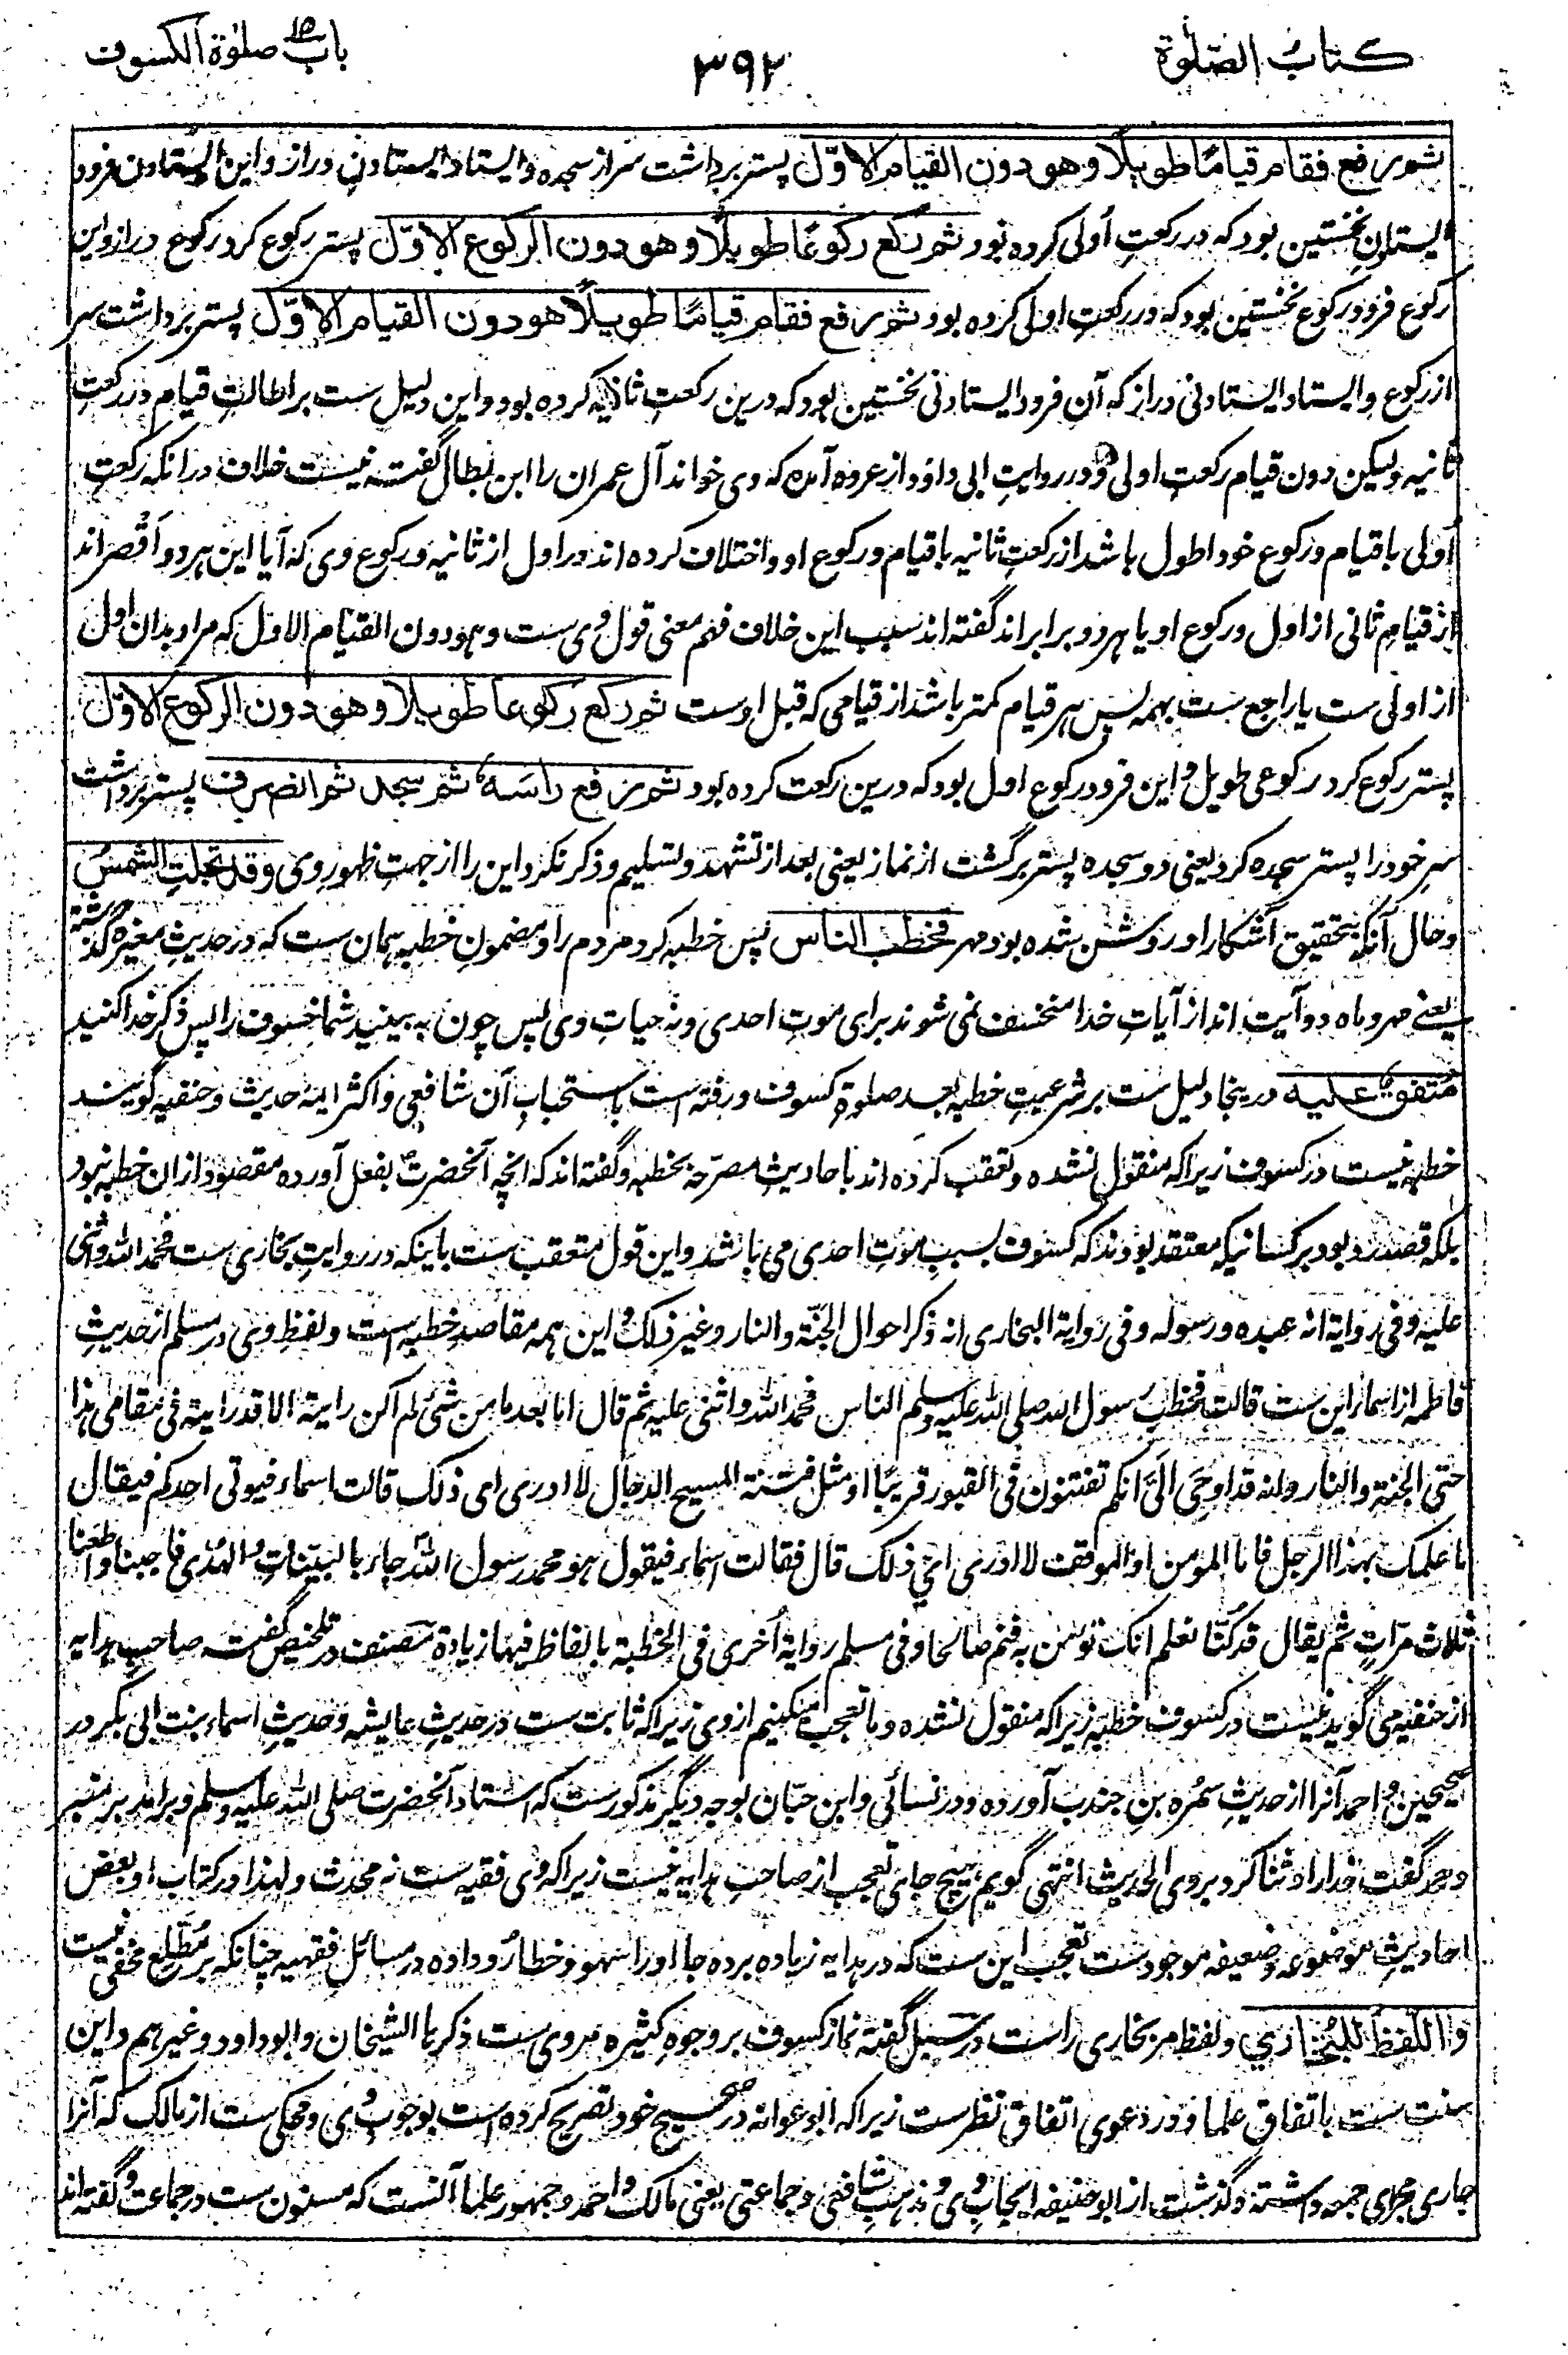 کتاب الصلوة
۳۹۲
باب صلوة الکسوف
ثم رفع فقام قیاما طویلا وهو دون القیام الاوّل پستر برداشت سر از سجده و ایستاد ایستادنی دراز و این ایستادن فرود
ایستادن نخستین بود که در رکعتِ اُولی کرده بود ثم رکع رکوعًا طویلًا وهو دون الرکوع الاوّل پستر رکوع کرد رکوع دراز و این
رکوع فرود رکوع نخستین بود که در رکعتِ اولی کرده بود ثم رفع فقام قیامًا طویلًا هو دون القیام الاوّل پستر برداشت سر
از رکوع و ایستاد ایستادنی دراز که آن فرود ایستادنی نخستین بود که درین رکعتِ ثانیه کرده بود و این دلیل ست بر اطالتِ قیام در رکعتِ
ثانیه ولیکن دون قیام رکعتِ اولی و در روایتِ ابی داؤد از عروه آمده که وی خواند آل عمران را ابن بطال گفته نیست خلاف در انکه رکعتِ
اُولی با قیام و رکوع خود اطول باشد از رکعتِ ثانیه با قیام و رکوع او و اختلاف کرده اند در اول از ثانیه و رکوع وی که آیا این هر دو اَقْصر اند
از قیامِ ثانی از اول و رکوع او یا هر دو برابر اند گفته اند سبب این خلاف فهم معنی قول وی ست وهو دون القیام الاول که مراد بدان اول
از اولی ست یا راجع ست بهمه پس هر قیام کمتر باشد از قیامی که قبل اوست ثم رکع رکوعا طویلا وهو دون الرکوع الاوّل
پستر رکوع کرد رکوعی طویل و این فرود رکوع اول بود که درین رکعت کرده بود ثم رفع راسَه ثم سجد ثم انصرف پستر برداشت
سرِ خود را پستر سجده کرد یعنی دو سجده پستر برگشت از نماز یعنی بعد از تشهد و تسلیم و ذکر نکرد این را از جهتِ ظهورِ وی وقد تجلت الشمسُ
و حال آنکه بتحقیق آشکارا و روشن شده بود مهر فخطب الناس پس خطبه کرد مردم را و مضمونِ خطبه همان ست که در حدیثِ مغیره گذشته
یعنے مهر و ماه دو آیت اند از آیاتِ خدا منخسف نمی شوند برای موتِ احدی و نه حیاتِ وی پس چون به بینید شما خسوف را پس ذکر خدا کنید
متفق علیه درینجا دلیل ست بر شرعیتِ خطبه بعد صلوةِ کسوف و رفته است باستحبابِ آن شافعی و اکثر ایمۀ حدیث و حنفیه گویند
خطبه نیست در کسوف زیرا که منقول نشده و تعقب کرده اند باحادیثِ مصرّحه بخطبه و گفته اند که انچه آنحضرتؐ بفعل آورده مقصود ازان خطبه نبود
بلکه قصد رد بود بر کسانیکه معتقد بودند که کسوف بسببِ موتِ احدی می باشد و این قول متعقب ست باینکه در روایتِ بخاری ست فحمد الله و اثنی
علیه و فی روایة انه عبده و رسوله و فی روایة البخاری انه ذکر احوال الجنّة و النار و غیر ذلک و این همه مقاصدِ خطبه است و لفظِ وی در مسلم از حدیثِ
فاطمه از اسماء این ست قالت فخطب رسول الله صلی الله علیه وسلم الناس فحمد الله و اثنی علیه ثم قال اما بعد ما من شیٔ لم اکن رایته الا قد رایته فی مقامی هذا
حتی الجنة و النار و انه قد اوحی الَیَّ انکم تفتنون فی القبور قریبًا او مثل فتنة المسیح الدجال لا ادری ای ذلک قالت اسماء فیوتی احدکم فیقال
ما علمک بهذا الرجل فاما المومن او الموقن لا ادری ایّ ذلک قال فقالت اسماء فیقول هو محمد رسول الله جاء بالبیّنات و الهُدٰی فاجبنا و اطعنا
ثلاث مرّاتٍ ثم یقال قد کُنّا نعلم انک تومن به فنم صالحا و فی مسلم روایة اُخری فی الخطبة بالفاظ فیها زیادة مصنف در تلخیص گفت صاحبِ هدایه
از حنفیه می گوید نیست در کسوف خطبه زیرا که منقول نشده و ما تعجب میکنیم ازوی زیرا که ثابت ست در حدیثِ عایشه و حدیثِ اسماء بنت ابی بکر در
صحیحین و احمد آنرا از حدیثِ سَمُره بنِ جندب آورده و در نسائی و ابن حبّان بوجه دیگر مذکورست که استاد آنحضرت صلی الله علیه وسلم و برآمد بر منبر
و حمد گفت خدا را و ثنا کرد بر وی الحدیث انتهی گویم هیچ جای تعجب از صاحبِ هدایه نیست زیرا که وی فقیه ست نه محدث و لهذا در کتاب او بعض
احادیثِ موضوعه و ضعیفه موجودست تعجب این ست که در هدایه زیاده برده جا او را سهو و خطا رو داده در مسائلِ فقهیه چنانکه بر مُطّلِع مخفی نیست
واللفظ للبُخاري و لفظ مر بخاری راست در سبل گفته نماز کسوف بر وجوهِ کثیره مروی ست ذکرها الشیخان و ابوداود و غیرهم و این
سنت ست باتفاقِ علما و در دعوی اتفاق نظرست زیرا که ابوعوانه در صحیح خود تصریح کرده است بوجوبِ وی و محکی ست از مالک که آنرا
جاری مجرای جمعه داشته و گذشت از ابوحنیفه ایجابِ وی و مذهبِ شافعی و جماعتی یعنی مالک و احمد و جمهور علما آنست که مسنون ست در جماعت و گفته اند